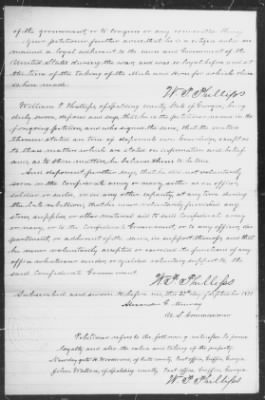 of the government, or to Congress or any committee thereof
Your petitioner further avers that he is a citizen and re-
mained a loyal adherent to the cause and Government of the
United States during the war, and was so loyal before and at
the time of the taking of the Mule and Horse for which claim
is here made.
W. F. Phillips
William F. Phillips, of Spalding county State of Georgia, being
duly sworn, deposes and says, that he is the petitioner named in the
foregoing petition, and who signed the same, that the matters
therein stated are true of deponent's own knowledge, except as
to those matters which are stated on information and belief
and as to those matters, he believes them to be true.
And deponent further says, that he did not voluntarily
serve in the Confederate army or navy, either as an officer,
soldier or sailor, or in any other capacity, at any time during
the late rebellion; that he never voluntarily furnished any
stores, supplies, or other material aid to said Confederate army
or navy, or to the Confederate Government, or to any officer, de-
partment, or adherent of the same, in support thereof, and that
he never voluntarily accepted or exercised the functions of any
office whatsoever under, or yielded voluntary support to, the
said Confederate Government.
W. F. Phillips
Subscribed and sworn to before me, this day of September 1871
Alexander
U. S. Commissioner
Petitioner refers to the following witnesses to prove
loyalty and also the value and taking of the property.
of said county, Post office, Griffin Georgia
of Spalding county Post office Griffin Georgia
W. F. Phillips